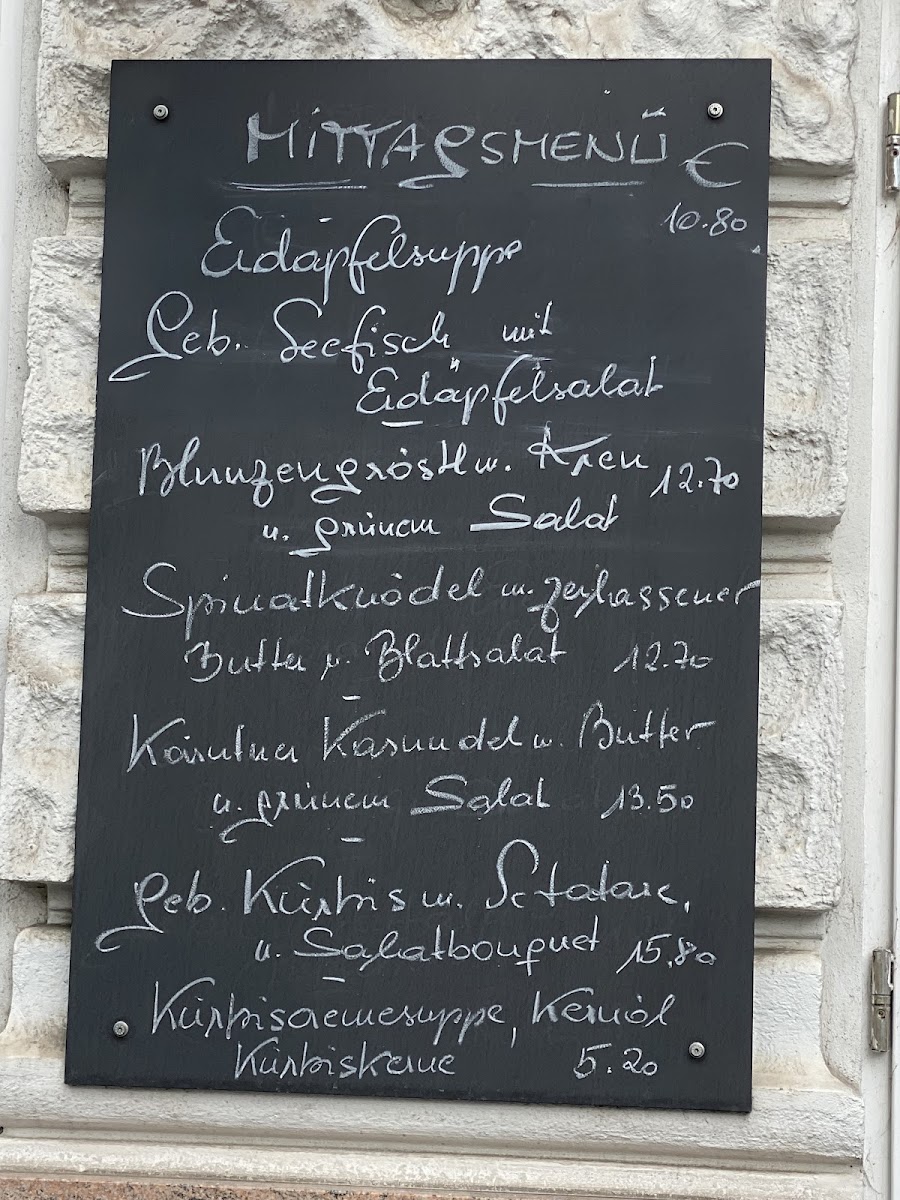 MITTAGSMENÜ €
10.80
Eidäpfelsuppe
Geb. Seefisch mit
Eidäpfelsalat
Blunzengröstl m. Kren 12.70
u. grünem Salat
Spinatknödel m. zerlassener
Butter u. Blattsalat 12.70
Kärntner Kasnudel m. Butter
u. grünem Salat 13.50
Geb. Kürbis m. Sc.tatare,
u. Salatbouquet 15.80
Kürbiscremesuppe, Kernöl
Kürbiskerne 5.20